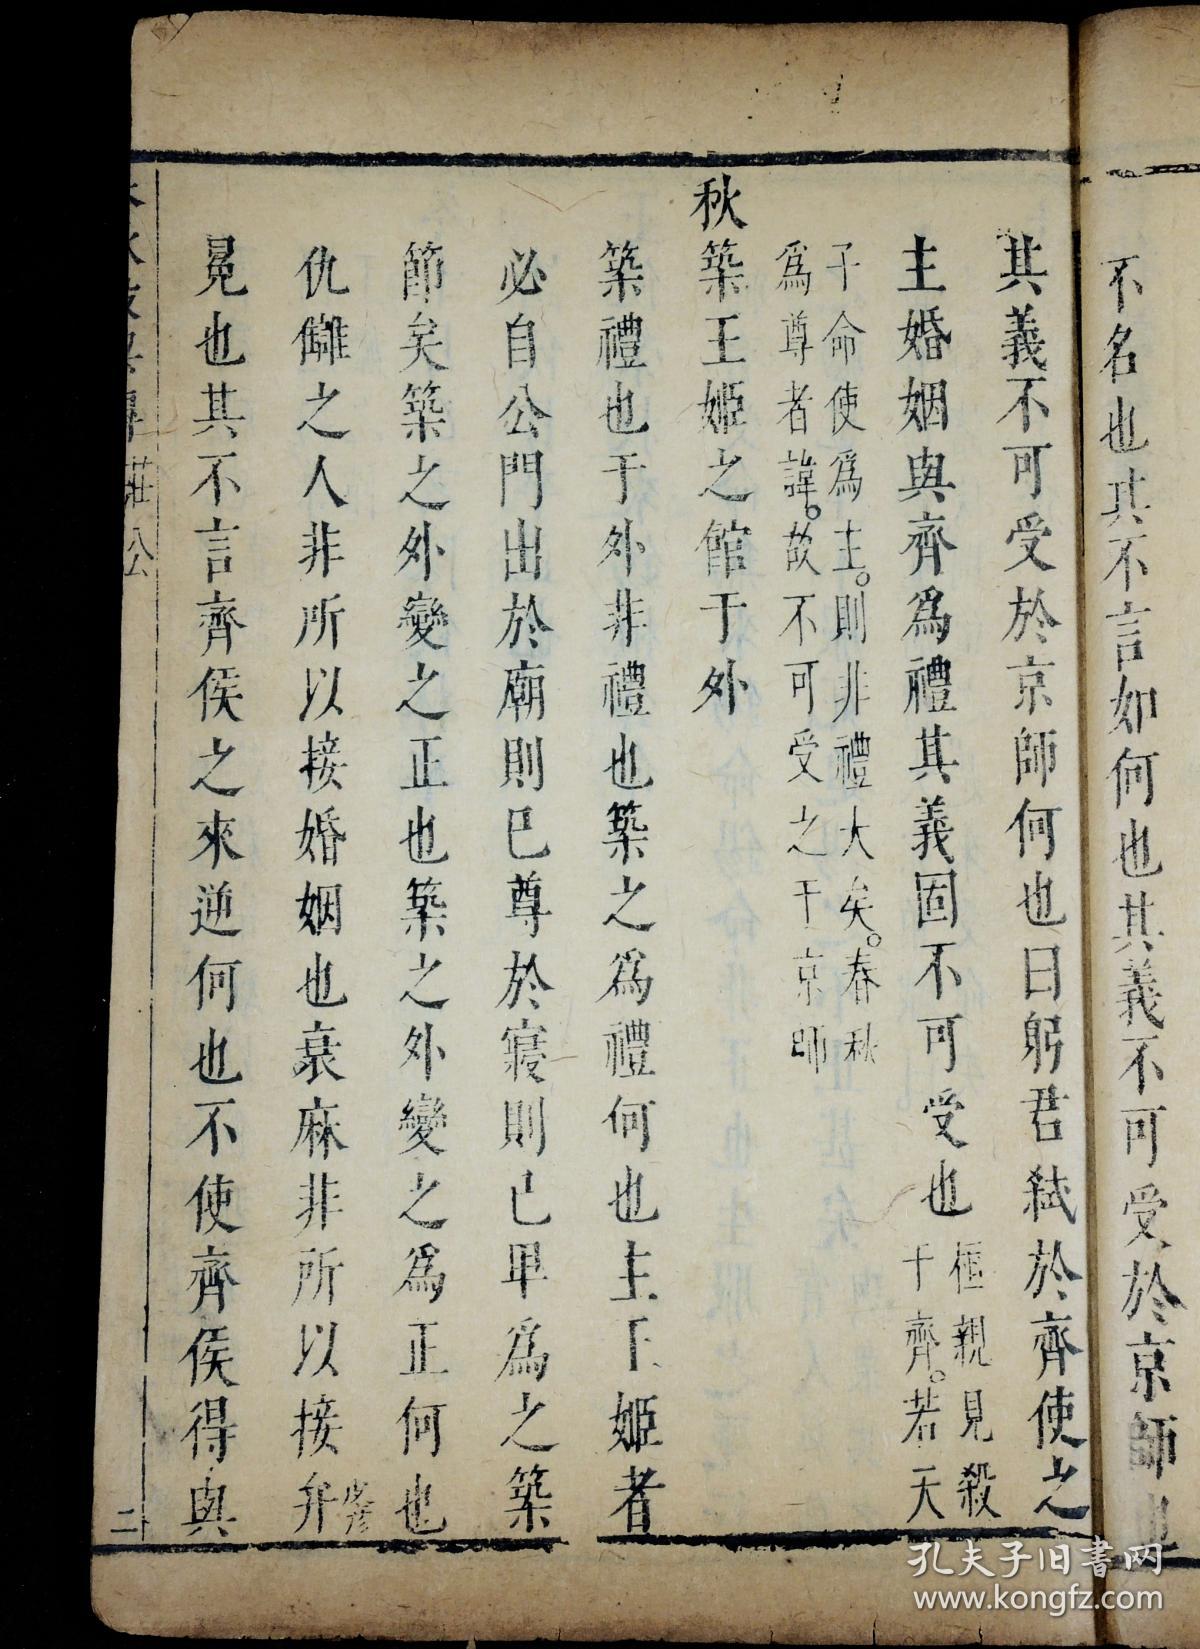 不名也其不言如何也其義不可受於京師也
其義不可受於京師何也曰躬君弒於齊使之
主婚姻與齊爲禮其義固不可受也
親見殺
于齊。若天
子命使爲主。則非禮大矣。春秋
爲尊者諱。故不可受之于京師
秋築王姬之館于外
築禮也于外非禮也築之爲禮何也主王姬者
必自公門出於廟則已尊於寢則已卑爲之築
節矣築之外變之正也築之外變之爲正何也
仇讎之人非所以接婚姻也衰麻非所以接弁
冕也其不言齊侯之來逆何也不使齊侯得與
莊公
二
孔夫子旧书网
www.kongfz.com